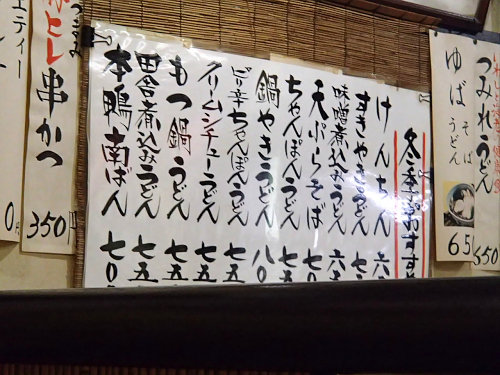 つみれうどん
650
ゆば そば うどん
65
冬季おすす
けんちん 六
すきやきうどん 七
味噌煮込みうどん 六
天ぷらそば 七〇
ちゃんぽんうどん 七五
鍋やきうどん 八〇
ピリ辛ちゃんぽんうどん 七五
クリームシチューうどん 七五
もつ鍋うどん 七五
田舎煮込みうどん 七五
本鴨南ばん 七〇
ヒレ串かつ
350円
エティー
0円